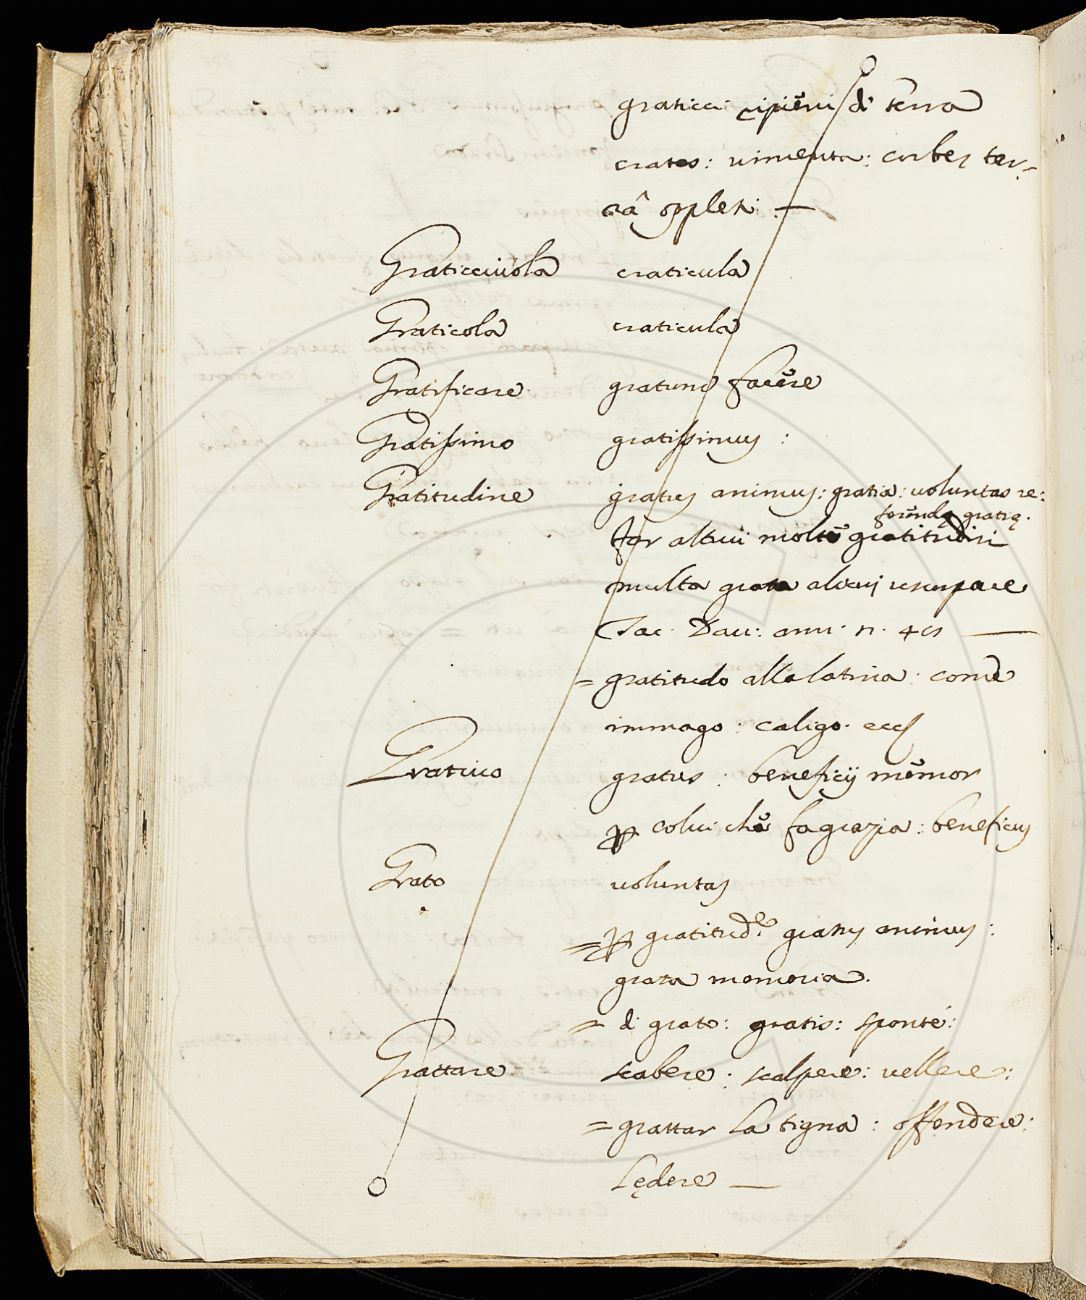 graticci ripieni di terra
crates: vimenta: corbes ter-
râ oppleti: —
Graticciuola craticula
Graticola craticula
Gratificare gratum facere
Gratissimo gratissimus:
Gratitudine gratus animus: gratia: voluntas re:
gratię.
far altrui molte gratitudini
multa grata alicui usurpare
Tac. Dav: ann. n. —
= gratitudo alla latina: come
immago: caligo.
Grativo gratus: beneficij memor
colui che fa grazia: beneficus
Grato voluntas
= gratitude. gratus animus:
grata memoria.
= di grato: gratis: sponte:
Grattare scabere: scalpere: vellere:
= grattar la tigna: offendere:
lędere —